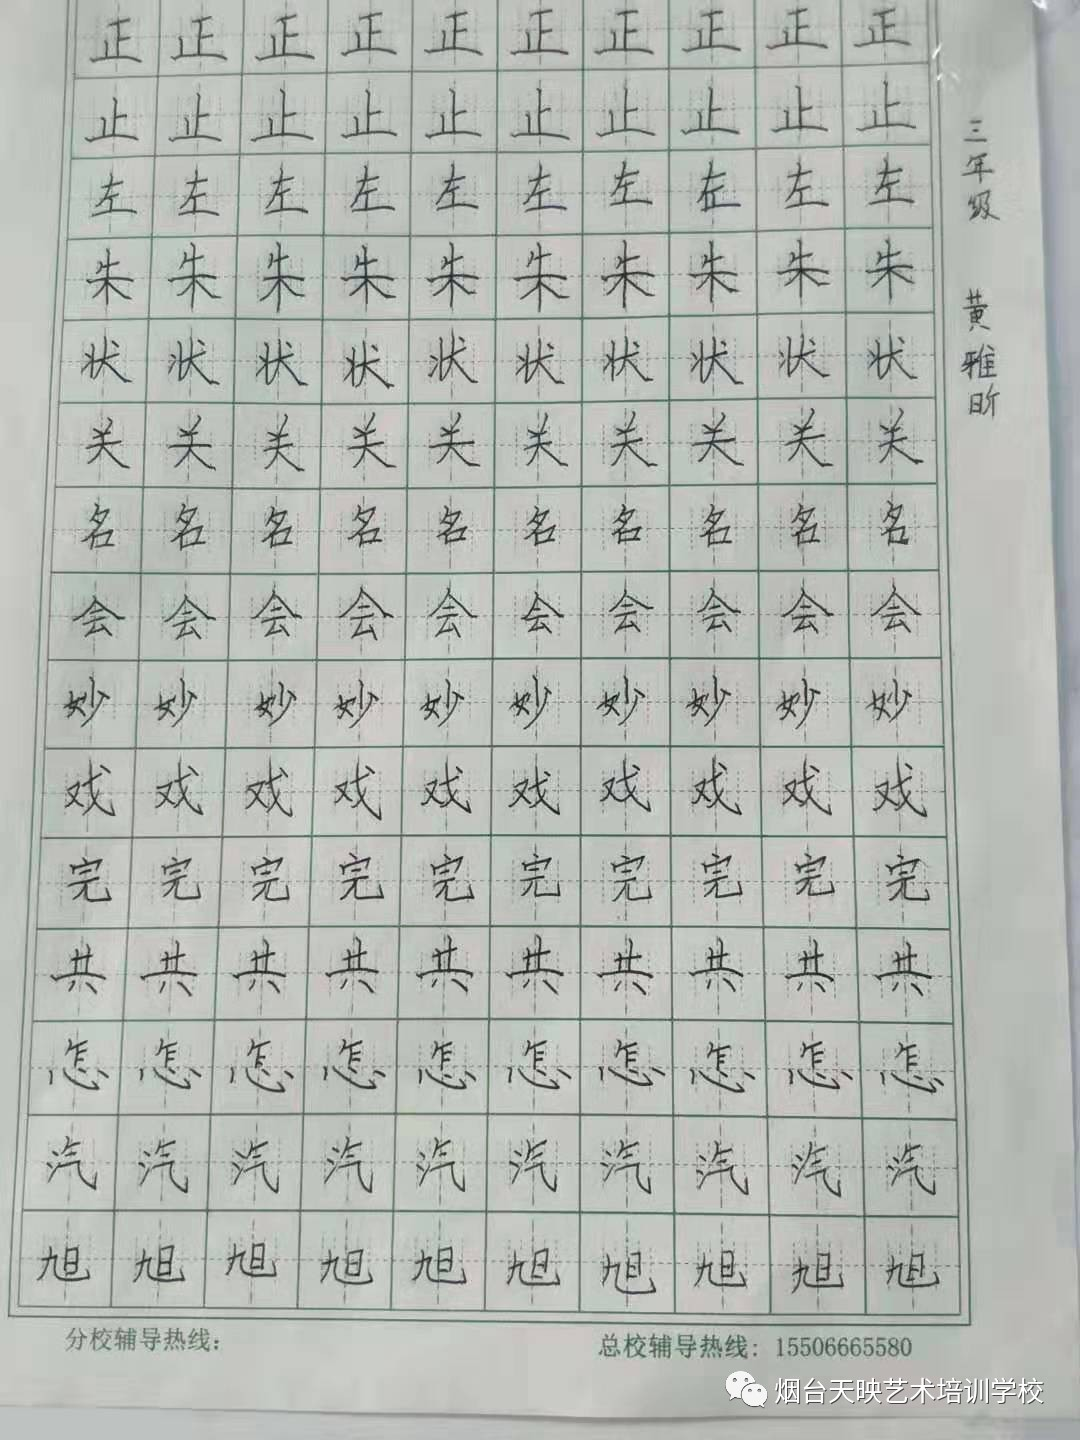 正正正正正正正正正正
止止止止止止止止止止
左左左左左左左左左左
朱朱朱朱朱朱朱朱朱朱
状状状状状状状状状状
关关关关关关关关关关
名名名名名名名名名名
会会会会会会会会会会
妙妙妙妙妙妙妙妙妙妙
戏戏戏戏戏戏戏戏戏戏
完完完完完完完完完完
共共共共共共共共共共
怎怎怎怎怎怎怎怎怎怎
汽汽汽汽汽汽汽汽汽汽
旭旭旭旭旭旭旭旭旭旭
三年级 黄雅昕
分校辅导热线：
总校辅导热线：15506665580
烟台天映艺术培训学校